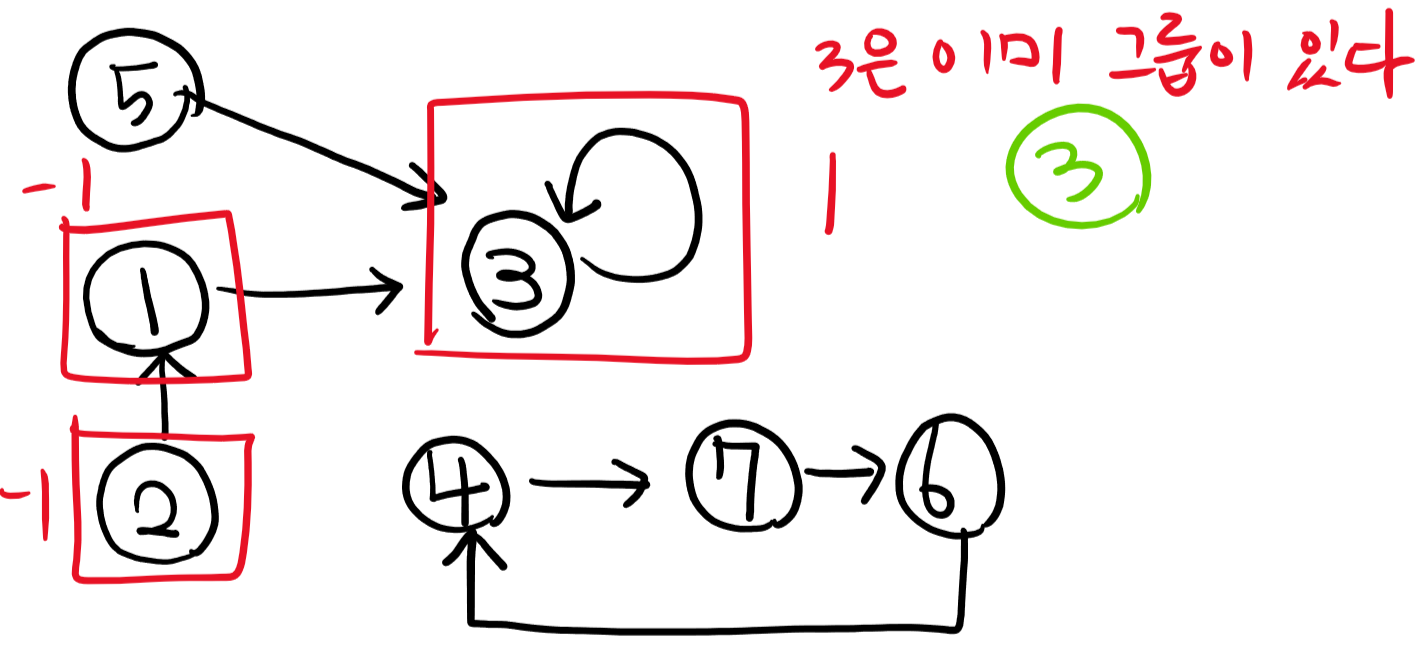 3은 이미 그룹이 있다
5
3
-1
1
3
1
-1
2
4 7 6